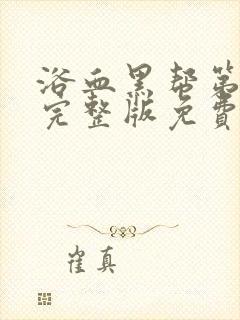 浴血黑帮第
完整版免费
崔真